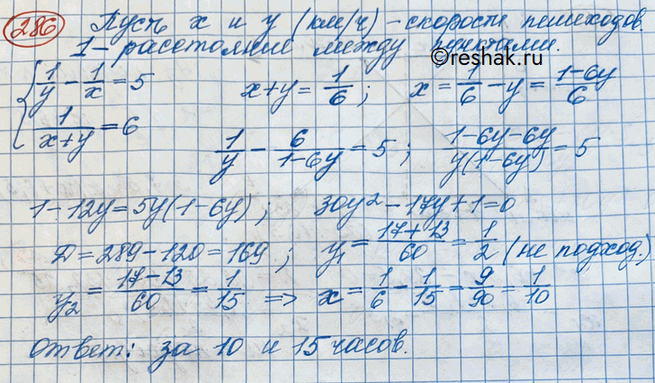 286 Пусть x и y (км/ч) - скорости пешеходов.
1 - расстояние между пунктами.
©reshak.ru
{ 1/y - 1/x = 5
1/(x+y) = 6
x+y = 1/6 ; x = 1/6 - y = (1-6y)/6
1/y - 6/(1-6y) = 5 ; (1-6y-6y)/(y(1-6y)) = 5
1-12y = 5y(1-6y) ; 30y² - 17y + 1 = 0
D = 289 - 120 = 169 ; y₁ = (17+13)/60 = 1/2 (не подход.)
y₂ = (17-13)/60 = 1/15 => x = 1/6 - 1/15 = 9/90 = 1/10
Ответ: за 10 и 15 часов.